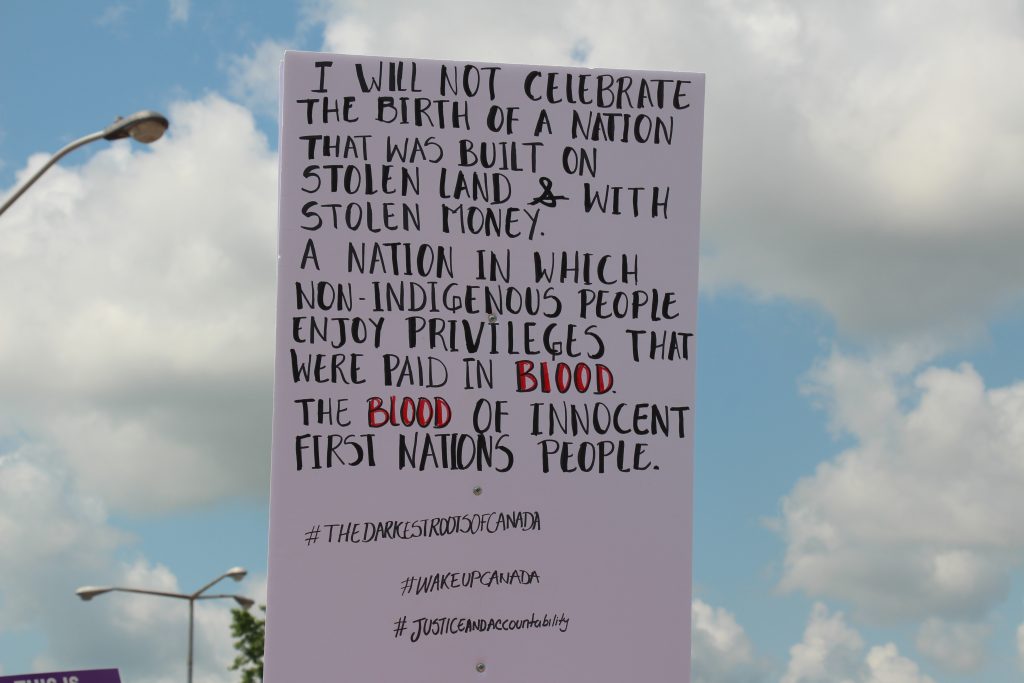 I WILL NOT CELEBRATE
THE BIRTH OF A NATION
THAT WAS BUILT ON
STOLEN LAND & WITH
STOLEN MONEY.
A NATION IN WHICH
NON-INDIGENOUS PEOPLE
ENJOY PRIVILEGES THAT
WERE PAID IN BLOOD.
THE BLOOD OF INNOCENT
FIRST NATIONS PEOPLE.
#THEDARKESTROOTSOFCANADA
#WAKEUPCANADA
#JUSTICEANDACCOUNTABILITY
THIS IS